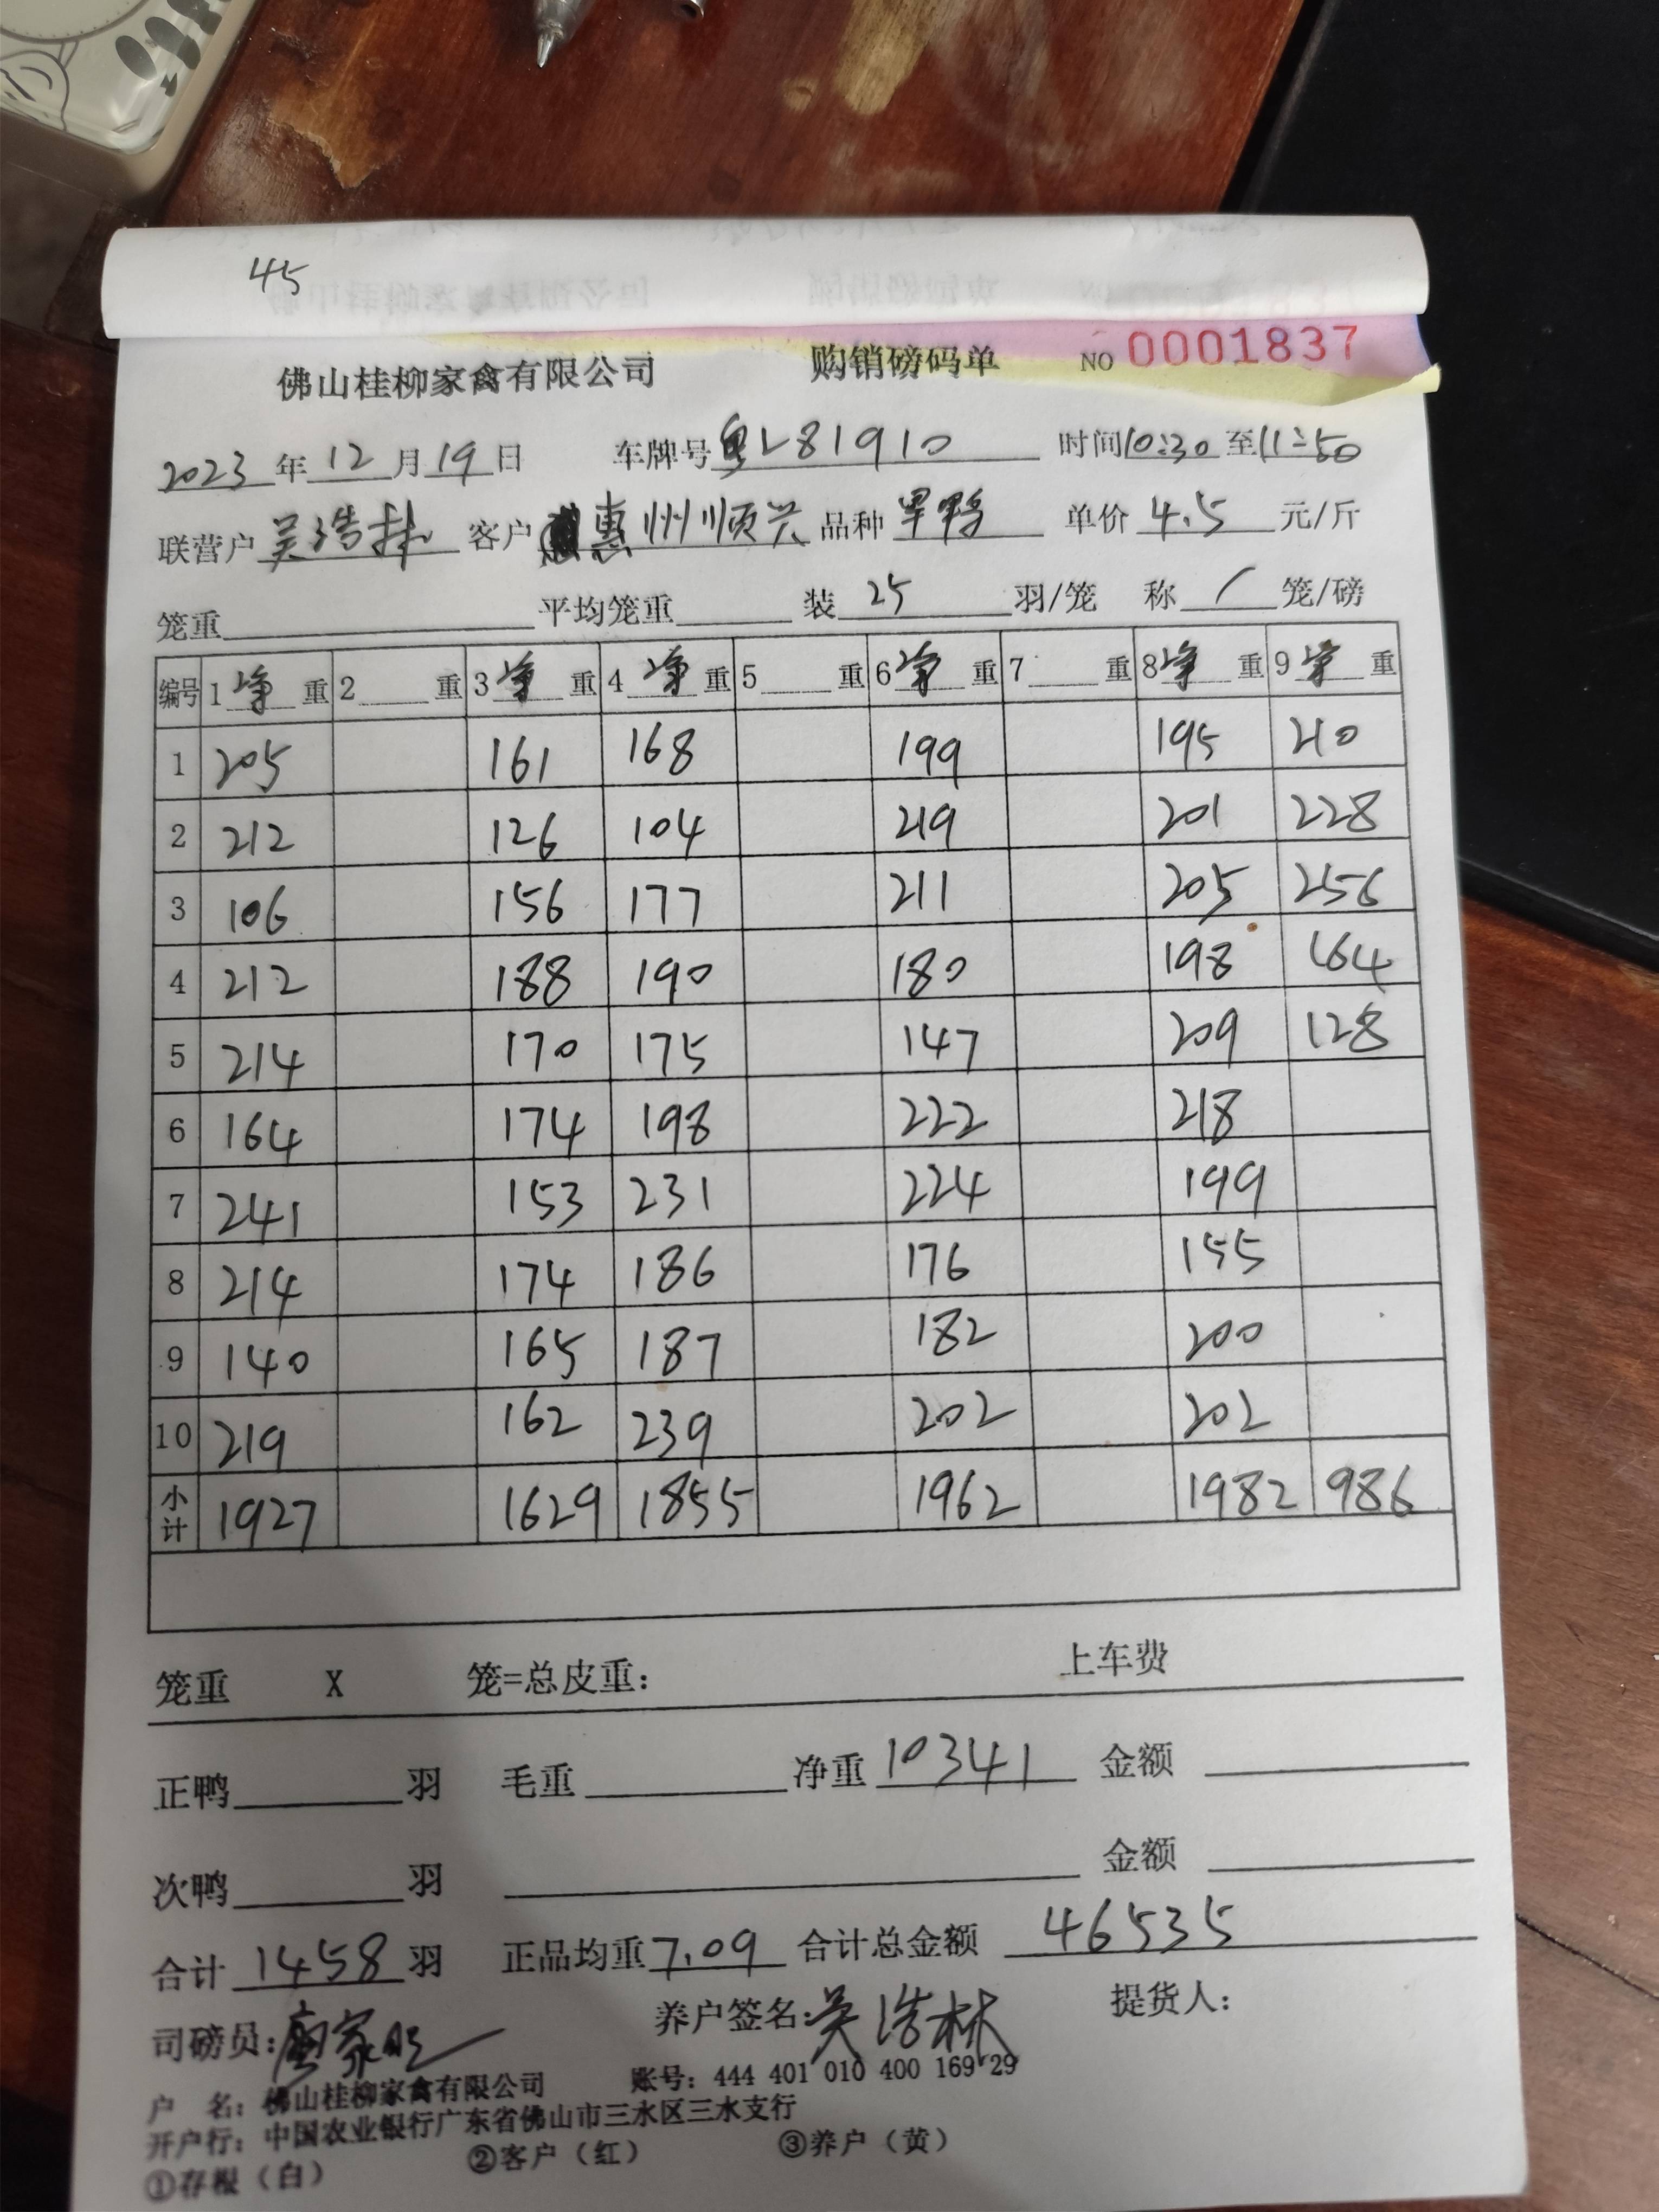 45
佛山桂柳家禽有限公司 购销磅码单 NO 0001837
2023年12月19日 车牌号粤L81910 时间10:30至11:50
联营户吴浩林 客户惠州顺兴 品种旱鸭 单价4.5元/斤
笼重 平均笼重 装25羽/笼 称/笼/磅
编号 1净重 2重 3净重 4净重 5重 6净重 7重 8净重 9净重
1 205 161 168 199 195 210
2 212 126 104 219 201 228
3 106 156 177 211 205 256
4 212 188 190 180 198 164
5 214 170 175 147 209 128
6 164 174 198 222 218
7 241 153 231 224 199
8 214 174 186 176 155
9 140 165 187 182 200
10 219 162 239 202 202
小计 1927 1629 1855 1962 1982 986
笼重 X 笼=总皮重: 上车费
正鸭 羽 毛重 净重10341 金额
次鸭 羽 金额
合计1458羽 正品均重7.09 合计总金额 46535
司磅员: 养户签名:吴浩林 提货人:
户 名: 佛山桂柳家禽有限公司 账号: 444 401 010 400 169 29
开户行: 中国农业银行广东省佛山市三水区三水支行
①存根（白） ②客户（红） ③养户（黄）